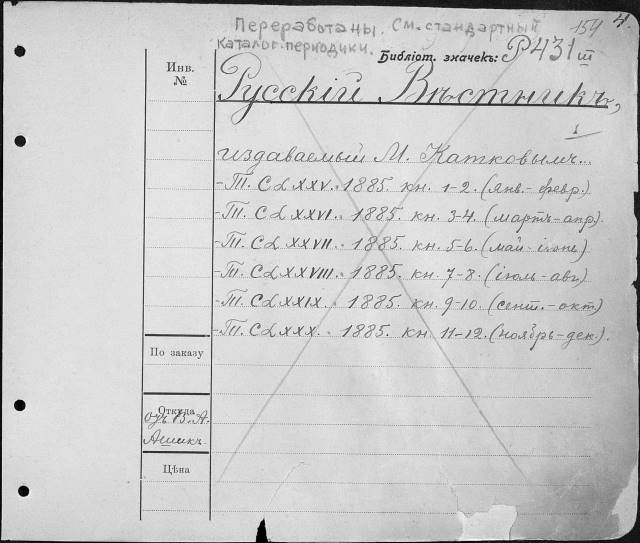 Переработаны. См. стандартный
каталог периодики.
159 4.
Библіот. значекъ: Р431 III
Инв.
№
Русскій Вѣстникъ,
1
издаваемый М. Катковымъ...
-Т. CLXXV. 1885. кн. 1-2. (янв.-февр.)
-Т. CLXXVI. 1885. кн. 3-4. (мартъ-апр).
-Т. CLXXVII. 1885. кн. 5-6. (май-іюнь)
-Т. CLXXVIII. 1885. кн. 7-8. (іюль-авг)
-Т. CLXXIX. 1885. кн. 9-10. (сент.-окт)
-Т. CLXXX. 1885. кн. 11-12. (ноябрь-дек.).
По заказу
Откуда
отъ В. А.
Ашикъ.
Цѣна